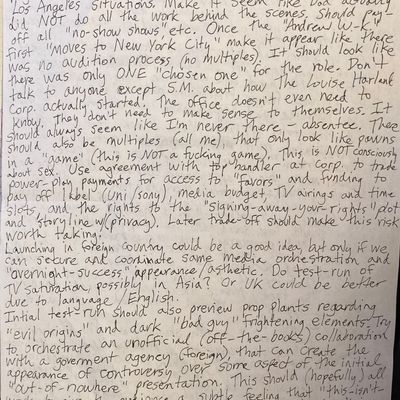 Los Angeles situations. Make it seem like Dad actually
did NOT do all the work behind the scenes. Should pay-
off all "no-show shows" etc. Once the Andrew
first "moves to New York City" make it appear like there
was no audition process (no multiples). It should look like
there was only ONE "chosen one" for the role. Don't
talk to anyone except S.M. about how The Louise Harland
Corp. actually started. The office doesn't even need to
know. They don't need to make sense to themselves. It
should always seem like I'm never there - absentee. There
should also be multiples (all me), that only look like pawns
in a "game" (this is NOT a fucking game). This is NOT consciously
about sex. Use agreement with top handler at corp. to trade
power-play payments for access to "favors" and funding to
pay off label (uni/sony), media budget, TV airings and time
slots and the rights to the "signing-away-your-rights" plot
and storyline w/(privacy). Later trade-off should make this risk
worth taking.
Launching in foreign country could be a good idea, but only if we
can secure and coordinate same media orchestration and
"overnight-success" appearance/asthetic. Do test-run of
TV saturation, possibly in Asia? Or UK could be better
due to language/English.
Intial test-run should also preview prop plants regarding
"evil origins" and dark "bad guy" frightening elements. Try
to orchestrate an unofficial (off-the-books) collaboration
with a goverment agency (foreign), that can create the
appearance of controversy over some aspect of the initial
"out-of-nowhere" presentation. This should (hopefully) all
subtle feeling that "this-isn't-